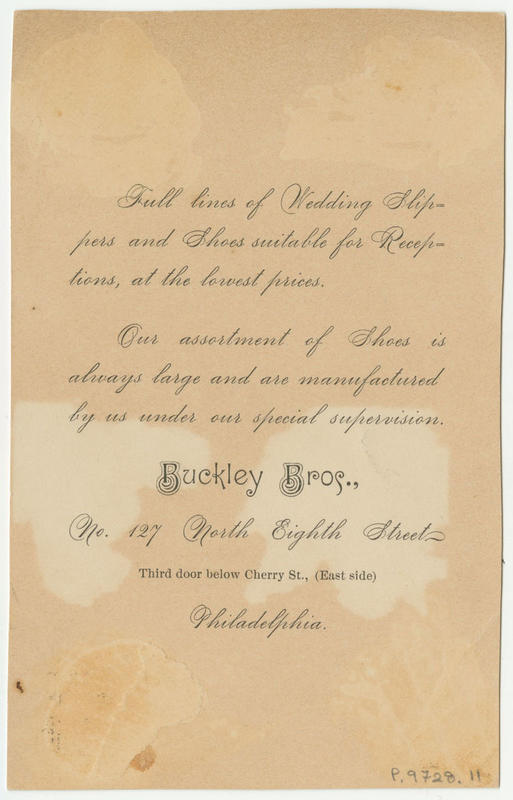 Full lines of Wedding Slip=
pers and Shoes suitable for Recep=
tions, at the lowest prices.
Our assortment of Shoes is
always large and are manufactured
by us under our special supervision.
Buckley Bros.,
No. 127 North Eighth Street
Third door below Cherry St., (East side)
Philadelphia.
P.9728.11